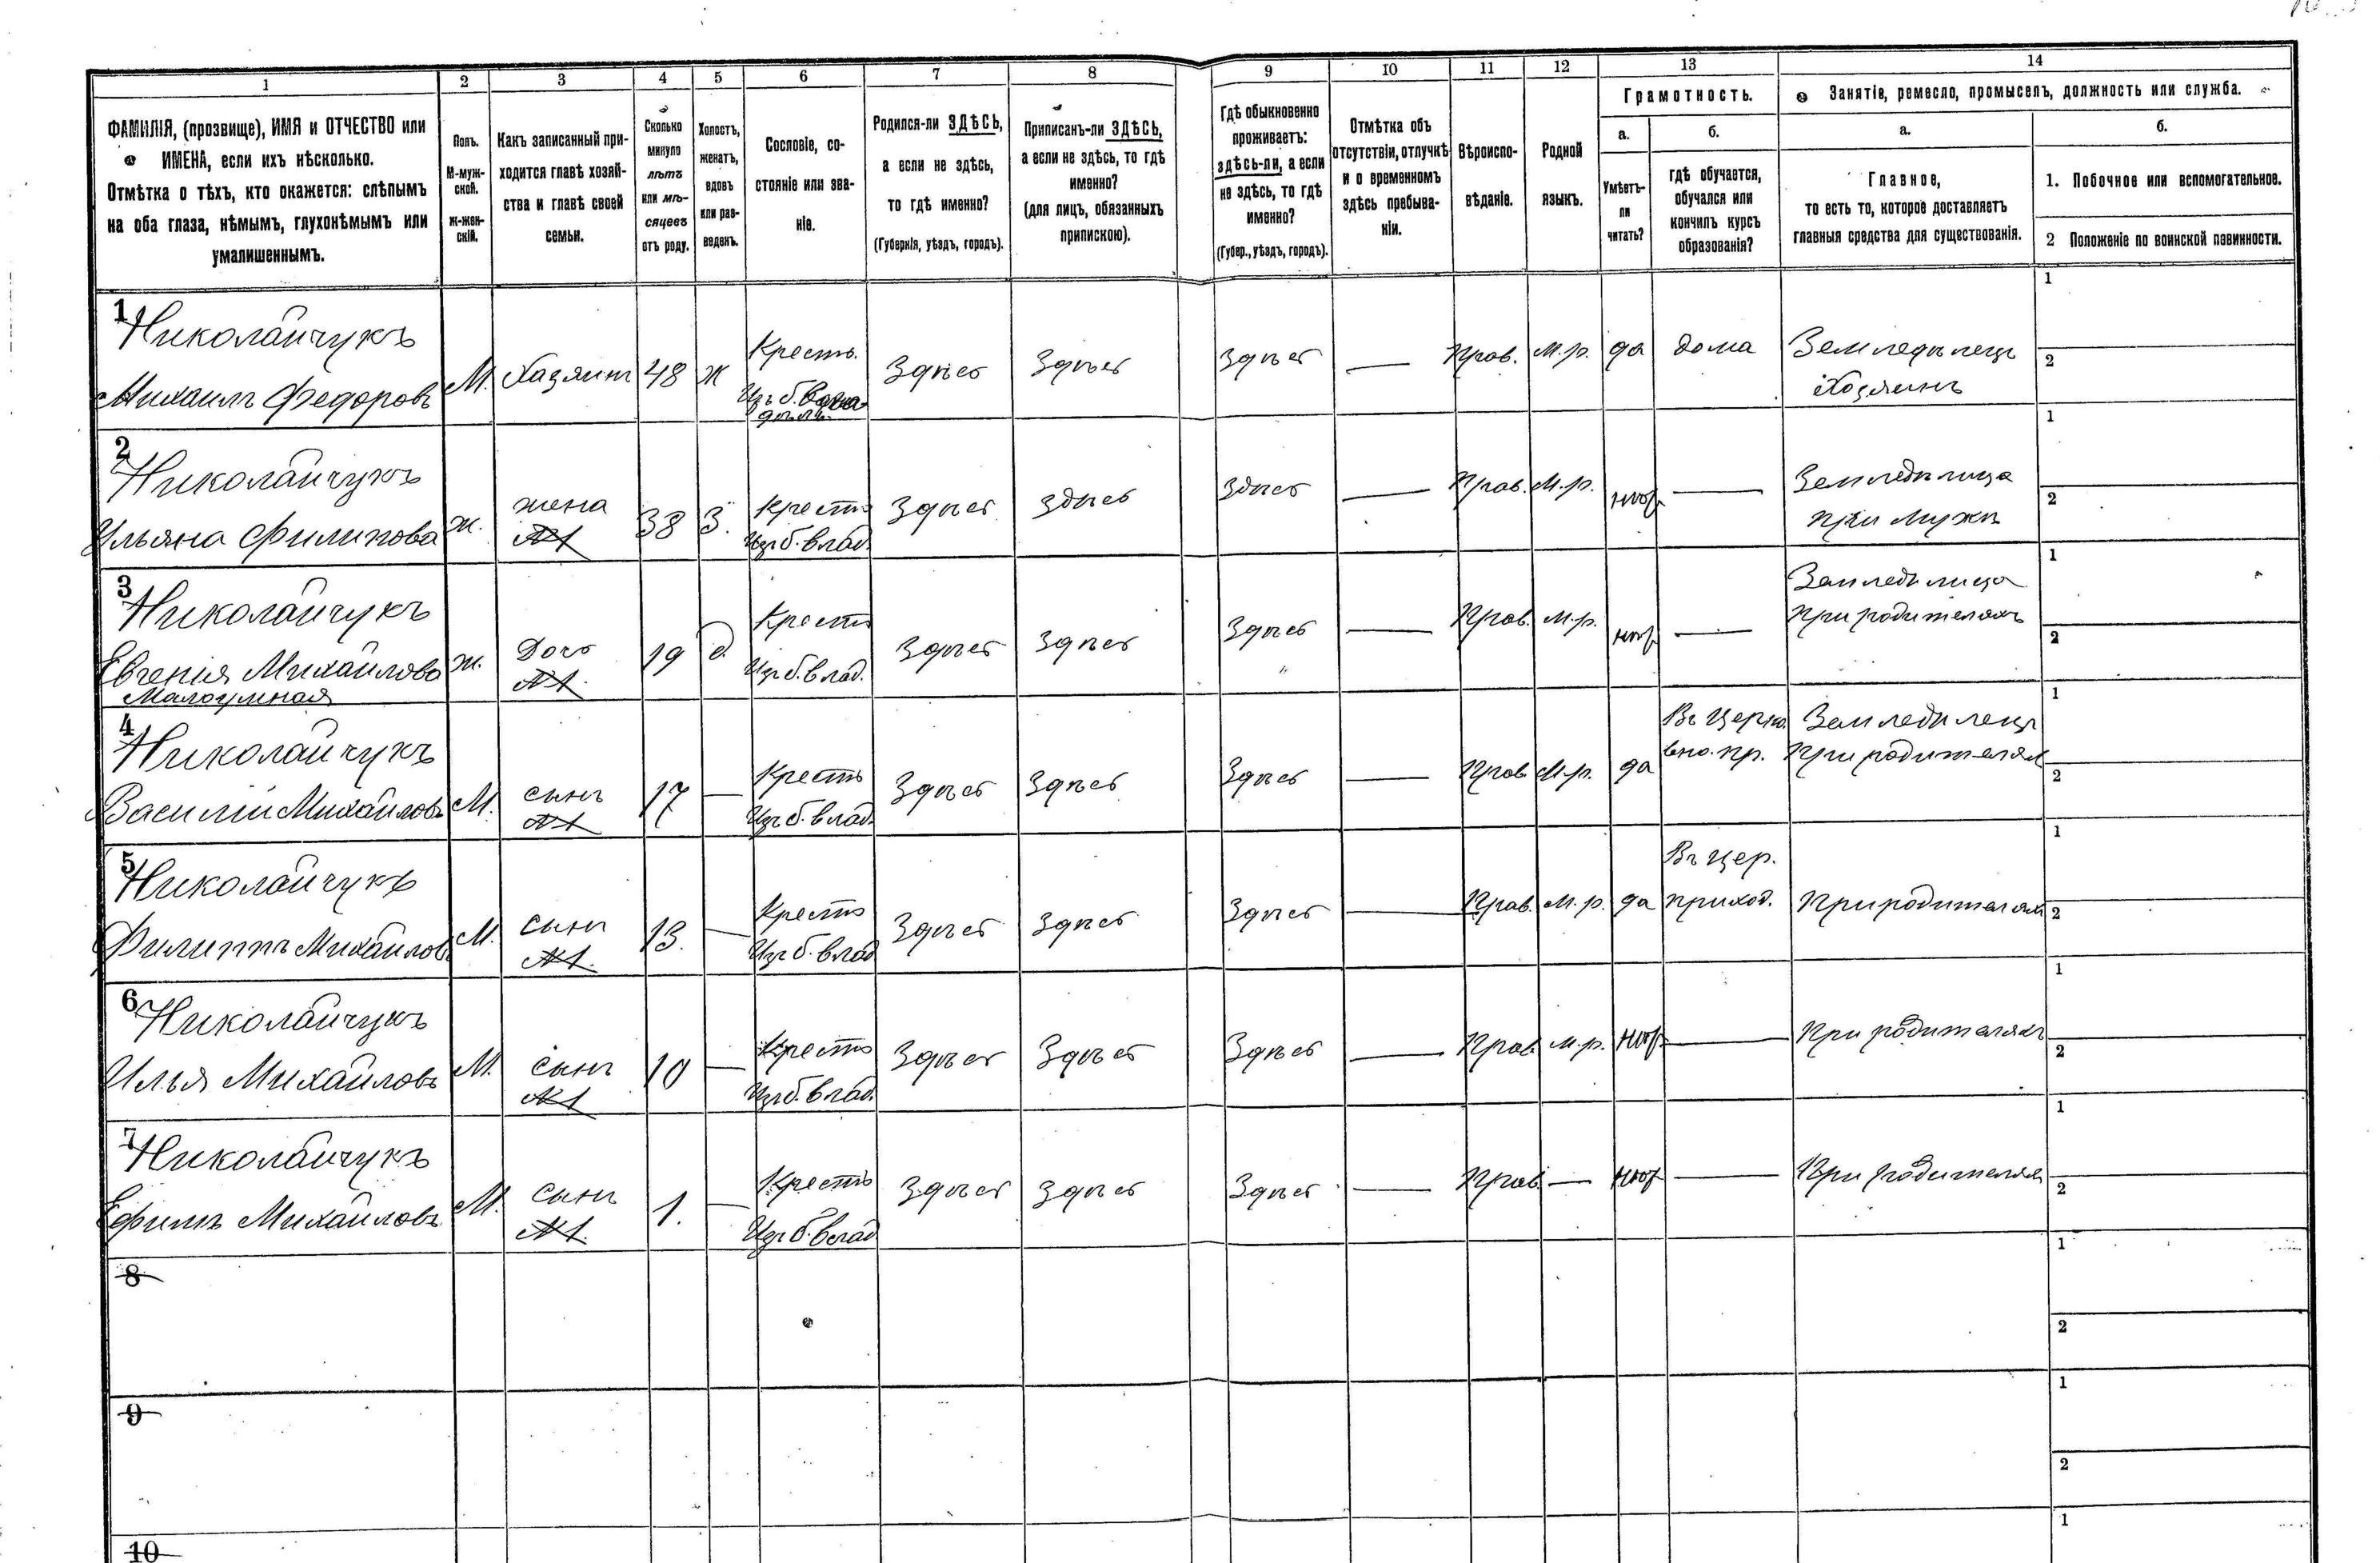 1 2 3 4 5 6 7 8 9 10 11 12 13 14
ФАМИЛІЯ, (прозвище), ИМЯ и ОТЧЕСТВО или
ИМЕНА, если ихъ нѣсколько.
Отмѣтка о тѣхъ, кто окажется: слѣпымъ
на оба глаза, нѣмымъ, глухонѣмымъ или
умалишеннымъ.
Полъ.
М-муж-
ской.
ж-жен-
скій.
Какъ записанный при-
ходится главѣ хозяй-
ства и главѣ своей
семьи.
Сколько
минуло
лѣтъ
или мѣ-
сяцевъ
отъ роду.
Холостъ,
женатъ,
вдовъ
или раз-
веденъ.
Сословіе, со-
стояніе или зва-
ніе.
Родился-ли ЗДѢСЬ,
а если не здѣсь,
то гдѣ именно?
(Губернія, уѣздъ, городъ).
Приписанъ-ли ЗДѢСЬ,
а если не здѣсь, то гдѣ
именно?
(для лицъ, обязанныхъ
припискою).
Гдѣ обыкновенно
проживаетъ:
здѣсь-ли, а если
не здѣсь, то гдѣ
именно?
(Губер., уѣздъ, городъ).
Отмѣтка объ
отсутствіи, отлучкѣ
и о временномъ
здѣсь пребыва-
ніи.
Вѣроиспо-
вѣданіе.
Родной
языкъ.
Грамотность.
а.
Умѣетъ-
ли
читать?
б.
гдѣ обучается,
обучался или
кончилъ курсъ
образованія?
Занятіе, ремесло, промыселъ, должность или служба.
а.
Главное,
то есть то, которое доставляетъ
главныя средства для существованія.
б.
1. Побочное или вспомогательное.
2 Положеніе по воинской повинности.
1
Николайчукъ
Михаилъ Федоровъ
М. Хазяинъ 48 ж
Кресть.
Изъ б. Влад
Здѣсь Здѣсь Здѣсь — Прав. М.р. да дома
Земледѣлецъ
Хозяинъ
1
2
2
Николайчукъ
Ульяна Филипова
ж. жена
№1
38 З.
Кресть
Изъ б. влад.
Здѣсь Здѣсь Здѣсь — Прав. М.р. нѣт —
Земледѣлица
при мужѣ
1
2
3
Николайчукъ
Евгенія Михайлова
Малоумная
ж. Дочь
№1.
19 д.
Кресть
Изъ б. влад.
Здѣсь Здѣсь Здѣсь — Прав. М.р. нѣт —
Земледѣлица
при родителяхъ
1
2
4
Николайчукъ
Василій Михайловъ
М. сынъ
№1
17 —
Кресть
Изъ б. влад.
Здѣсь Здѣсь Здѣсь — Прав М.р. да
Въ Церко.
вно. пр.
Земледѣлецъ
При родителях
1
2
5
Николайчукъ
Филиппъ Михайлов
М. сынъ
№1.
13. —
Кресть
Изъ б. влад
Здѣсь Здѣсь Здѣсь — Прав. М.р. да
Въ цер.
приход.
При родителях
1
2
6
Николайчукъ
Илья Михайловъ
М. сынъ
№1
10 —
Кресть
Изъ б. влад.
Здѣсь Здѣсь Здѣсь — Прав М.р. нѣт —
При родителяхъ
1
2
7
Николайчукъ
Ефимъ Михайловъ
М. сынъ
№1.
1. —
Кресть
Изъ б. влад
Здѣсь Здѣсь Здѣсь — Прав — нѣт —
При родителях
1
2
8
1
2
9
1
2
10
1